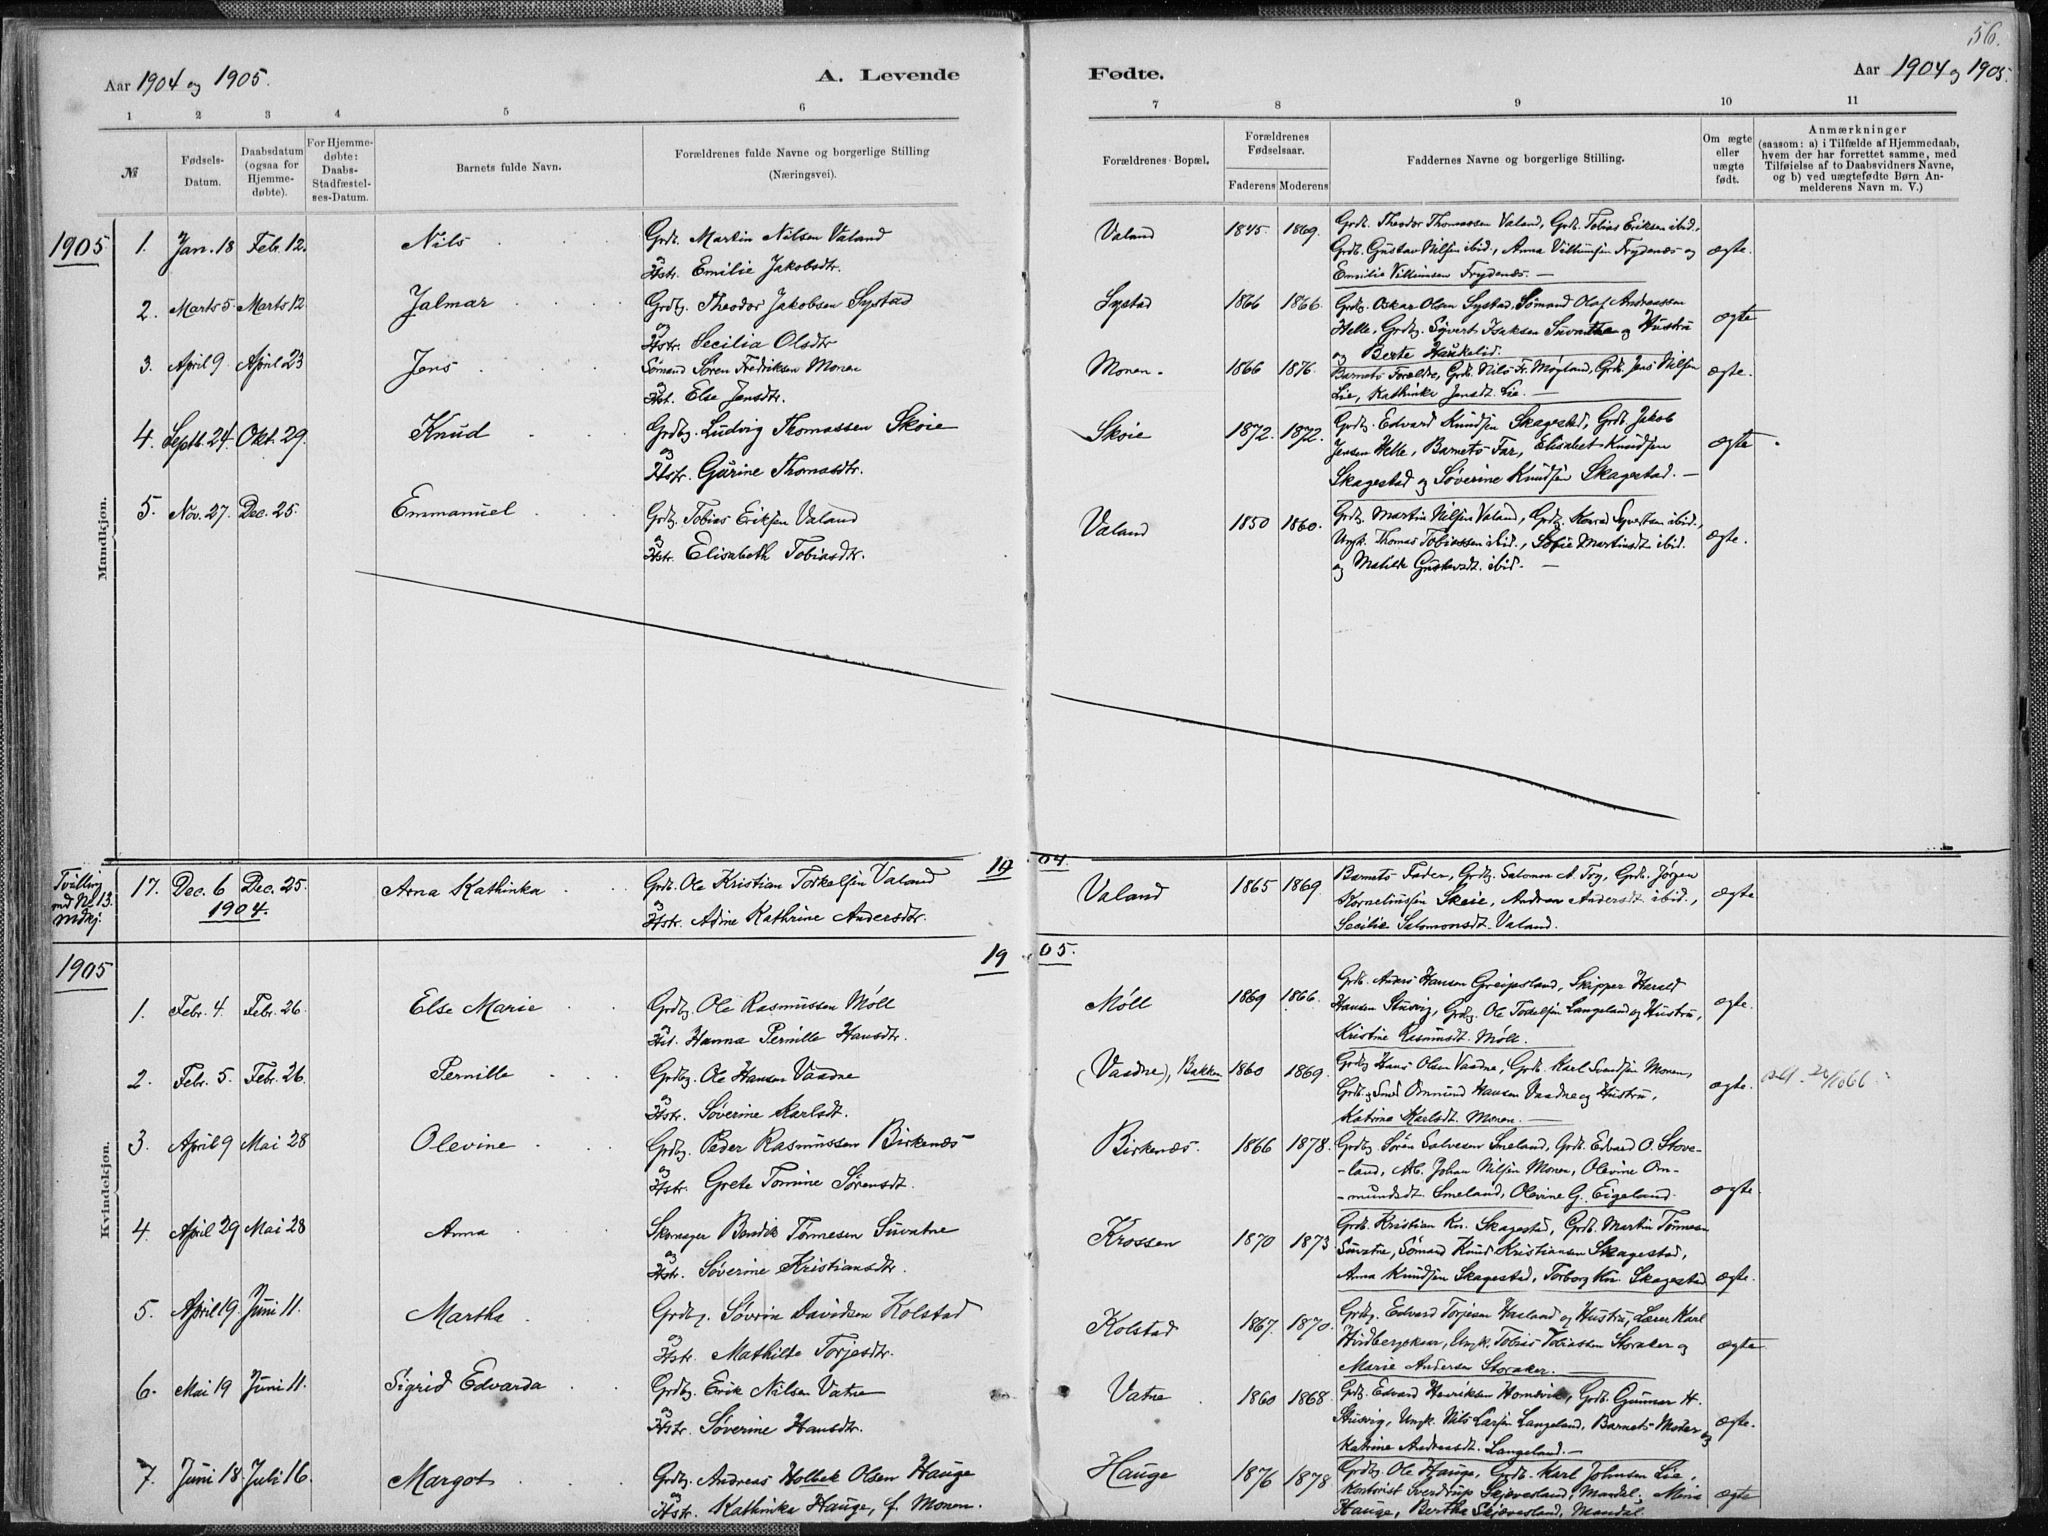 56.
Aar 1904 og 1905.
A. Levende
Fødte.
Aar 1904 og 1905.
1 2 3 4 5 6 7 8 9 10 11
№
Fødsels-Datum.
Daabsdatum (ogsaa for Hjemmedøbte).
For Hjemmedøbte: Daabs-Stadfæstelses-Datum.
Barnets fulde Navn.
Forældrenes fulde Navne og borgerlige Stilling
(Næringsvei).
Forældrenes Bopæl.
Forældrenes Fødselsaar.
Faderens Moderens
Faddernes Navne og borgerlige Stilling.
Om ægte eller uægte født.
Anmærkninger
(saasom: a) i Tilfælde af Hjemmedaab,
hvem der har forrettet samme, med
Tilføielse af to Daabsvidners Navne,
og b) ved uægtefødte Børn An-
melderens Navn m. V.)
Mandkjøn.
1905
1. Jan. 18 Febr. 12. Nils
Grdb. Martin Nilsen Valand
og Hstr. Emilie Jakobsdtr.
Valand 1845. 1869.
Grdb. Theodor Thomassen Valand, Grdb. Tobias Eriksen ibid.,
Grdb. Gustav Nilsen ibid., Anna Villumsen Frydenæs og
Emilie Villumsen Frydenæs. —
ægte.
2. Marts 5 Marts 12 Jalmar
Grdbg. Theodor Jakobsen Systad
og Hstr. Secilia Olsdtr
Systad 1866 1866.
Grdbg. Oskar Olsen Systad, Sømand Olaf Andreassen
Helle, Grdbg. Sivert Isaksen Suvatne og Hustru
og Berte Haukelid.
ægte
3. April 9 April 23 Jens
Sømand Søren Fredriksen Monen
og Hst. Else Jensdtr.
Monen. 1866 1876.
Barnets Forældre, Grdb. Nils Fr. Møgland, Grdb. Jens Nilsen
Lie, Kathinka Jensdt. Lie. —
ægte.
4. Septb. 24. Okt. 29. Knud
Grdbg. Ludvig Thomassen Skoie
og Hstr. Gurine Thomasdtr.
Skoie 1872. 1872.
Grdbg. Edvard Knudsen Skagestad, Grdb. Jakob
Jensen Helle, Barnets Far, Elisabet Knudsen
Skagestad og Søverine Knudsen Skagestad. —
ægte
5. Nov. 27. Dec. 25. Emmanuel
Grdbg. Tobias Eriksen Valand
og Hstr. Elisabeth Tobiasdtr.
Valand 1850 1860.
Grdbg. Martin Nilsen Valand, Grdbg. Konrad Syvertsen ibid.,
Ungk. Thomas Tobiassen ibid., Sofie Martinsdt. ibid.
og Matilde Gustavsdt. ibid. —
ægte.
1904.
Tvilling med No 13. Mdkj.
17. Dec. 6 Dec. 25. Arna Kathinka
1904.
Grdb. Ole Kristian Torkelsen Valand
og Hstr. Adine Kathrine Andersdtr.
Valand 1865 1869.
Barnets Fader, Grdbg. Salomon A. Fog, Grdb. Jørgen
Korneliussen Skeie, Andrea Andersdt. ibid.,
Secilie Salomonsdt. Valand.
ægte
Kvindekjøn.
1905
1905.
1. Febr. 4. Febr. 26. Else Marie
Grdbg. Ole Rasmussen Møll
og Hst. Hanna Pernille Hansdtr.
Møll 1869 1866.
Grdb. Anders Hansen Greipsland, Skipper Harald
Hansen Stusvig, Grdbg. Ole Torkelsen Langeland og Hustru,
Kristine Rasmusdt. Møll.
ægte.
2. Febr. 5. Febr. 26 Pernille
Grdbg. Ole Hansen Vaadne
og Hstr. Søverine Karlsdt.
(Vaadne), Bakken 1860 1869.
Grdbg. Hans Olsen Vaadne, Grdb. Karl Svendsen Monen,
Grdb. og Smed Ommund Hansen Vaadne og Hustru,
Katrine Karlsdt. Monen. —
ægte.
3. April 9 Mai 28 Olevine
Grdbg. Peder Rasmussen Birkenæs
og Hstr. Grete Tomine Sørensdt.
Birkenæs. 1866 1878.
Grdbg. Søren Salvesen Smeland, Grdb. Edvard O. Stove-
-land, Arb. Johan Nilsen Monen, Olevine Om-
-mundsdt. Smeland, Olevine G. Eigeland.
ægte.
4. April 29 Mai 28 Anna
Skomager Bendik Tønnesen Suvatne
og Hstr. Søverine Kristiansdtr.
Krossen 1870 1873
Grdb. Kristian Kn. Skagestad, Grdb. Martin Tønnesen
Suvatne, Sømand Knud Kristiansen Skagestad,
Anna Knudsen Skagestad, Torborg Kn. Skagestad
ægte.
5. April 19. Juni 11. Martha
Grdbg. Søvrin Davidsen Kolstad
og Hstr. Mathilde Torjesdtr.
Kolstad 1867. 1870.
Grdbg. Edvard Torjesen Hasland og Hustru, Lærer Karl
Ungk. Tobias Tobiassen Storaker og
Marie Andersen Storaker.
ægte
6. Mai 19 Juni 11. Sigrid Edvarda
Grdbg. Erik Nilsen Vatne
og Hstr. Søverine Hansdtr.
Vatne 1860 1868.
Grdbg. Edvard Henriksen Homsvik, Grdb. Gunnar H.
Stusvig, Ungk. Nils Larsen Langeland, Barnets Moder og
Katrine Andreasdt. Langeland. —
ægte.
7. Juni 18. Juli 16. Margot
Grdbg. Andreas Holbek Olsen Hauge
og Hstr. Kathinka Hauge, f. Monen.
Hauge 1876 1878
Grdbg. Ole Hauge, Grdb. Karl Johnsen Lie,
Kontorist Sverdrup Skjævesland, Mandal, Maria
Hauge, Bertha Skjævesland, Mandal.
ægte